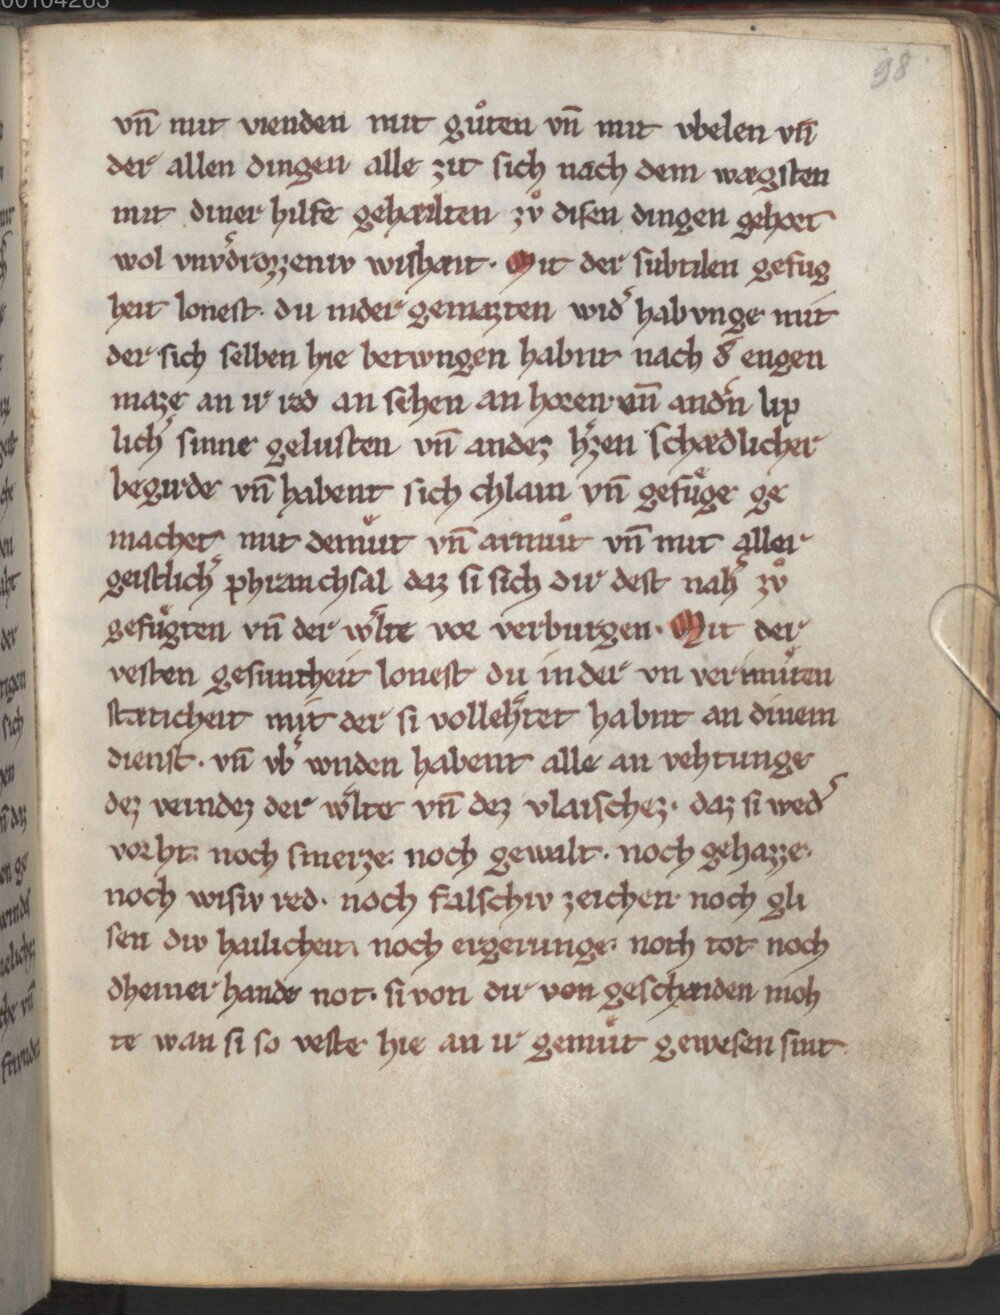 00104263
98
vn̄ mit vienden mit gůten vn̄ mit vbelen vn̄
der allen dingen alle zit sich nach dem wægsten
mit diner hilfe gehæilten zů disen dingen gehoͤrt
wol vnv̾drozzeniv wishæit. Mit der subtilen gefug
heit lonest. du inder gemazten wid̾ habvnge mit
der sich selben hie betwngen habnt nach d̾ engen
maze an ir red an sehen an horen. vn̄ and̾n lip
lich̾ sinne gelusten vn̄ andez h̾zen schædlicher
begirde vn̄ habent sich chlain vn̄ gefůge ge
machet mit demůt vn̄ armůt vn̄ mit aller
geistlich̾ phrimchsal daz si sich dir dest nah̾ zů
gefůgten vn̄ der w̾lte vor verburgen. Mit der
vesten gesuntheit lonest du inder vn vermůten
stæticheit mit der si volleh̾tet habnt an dinem
dienst. vn̄ vb̾ wnden habent alle an vehtunge
dez veindez der w̾lte vn̄ dez vlaischez. daz si wed̾
vorht. noch smerze. noch gewalt. noch gehazze.
noch wisiv red. noch falschiv zeichen noch gli
sen div hailicheit. noch ergerunge. noch tot noch
dheiner hande not. si von dir von geschæiden moh
te wan si so veste hie an ir gemůt gewesen sint